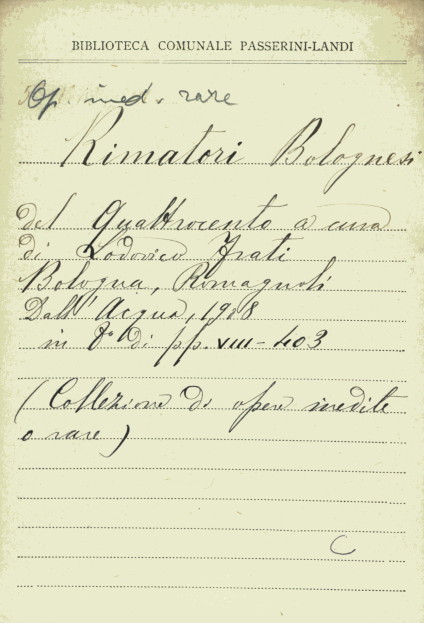 BIBLIOTECA COMUNALE PASSERINI-LANDI
Op. ined. rare
Rimatori Bolognesi
del Quattrocento a cura
di Lodovico Frati
Bologna, Romagnoli
Dall'Acqua, 1908
in 8° di pp. VIII-403
(Collezione di opere inedite
o rare)
C